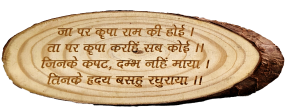 जा पर कृपा राम की होई ।
ता पर कृपा करहिं सब कोई ।।
जिनके कपट, दम्भ नहिं माया ।
तिनके ह्रदय बसहु रघुराया ।।